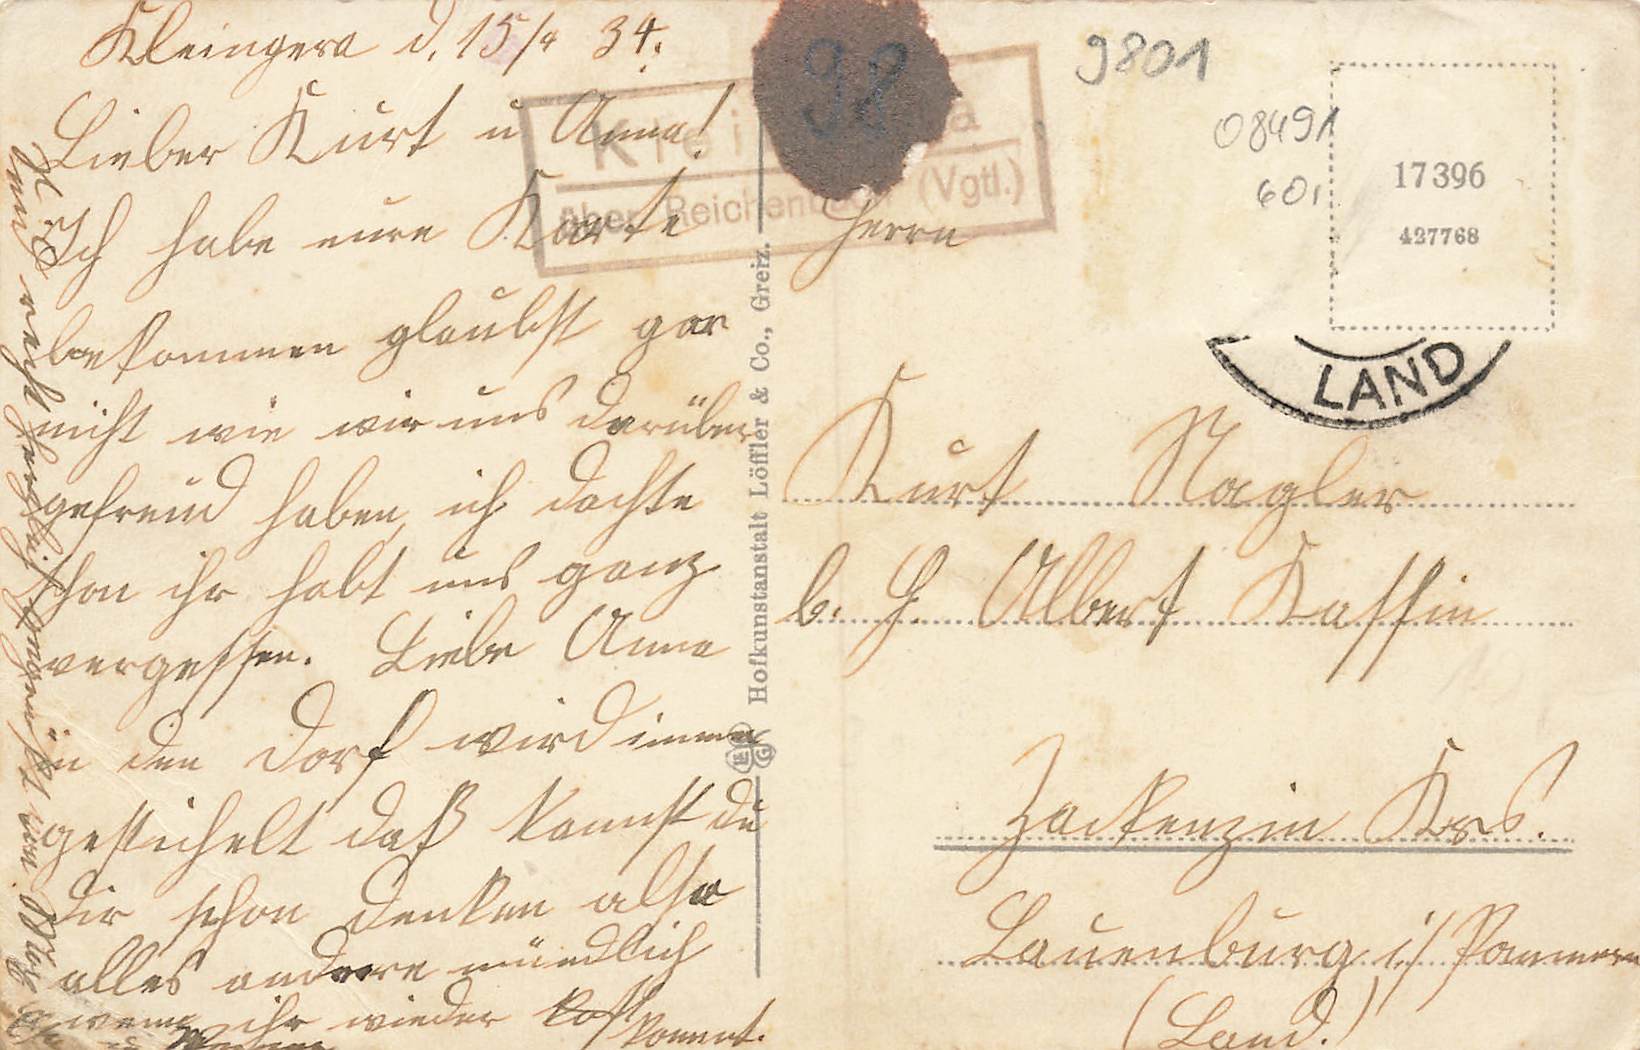 Kleingera d. 15/4 34.
Lieber Kurt u Anna!
Ich habe eure Karte
bekommen glaubst gar
nicht wie wir uns darüber
gefreud haben, ich dachte
schon ihr habt uns ganz
vergessen. Liebe Anna
in den Dorf wird immer
gestichelt daß kannst du
dir schon denken also
alles andere mündlich
wenn ihr wieder
kommt.
recht herzlich gegrüßt von
98
über Reichenbach (Vgtl.)
9801
08491
601
17396
427768
LAND
Hofkunstanstalt Löffler & Co., Greiz.
Herrn
Kurt Nagler
b. H. Albert Kassin
Zackenzin Krs.
Lauenburg i/ Pommern
(Land.)